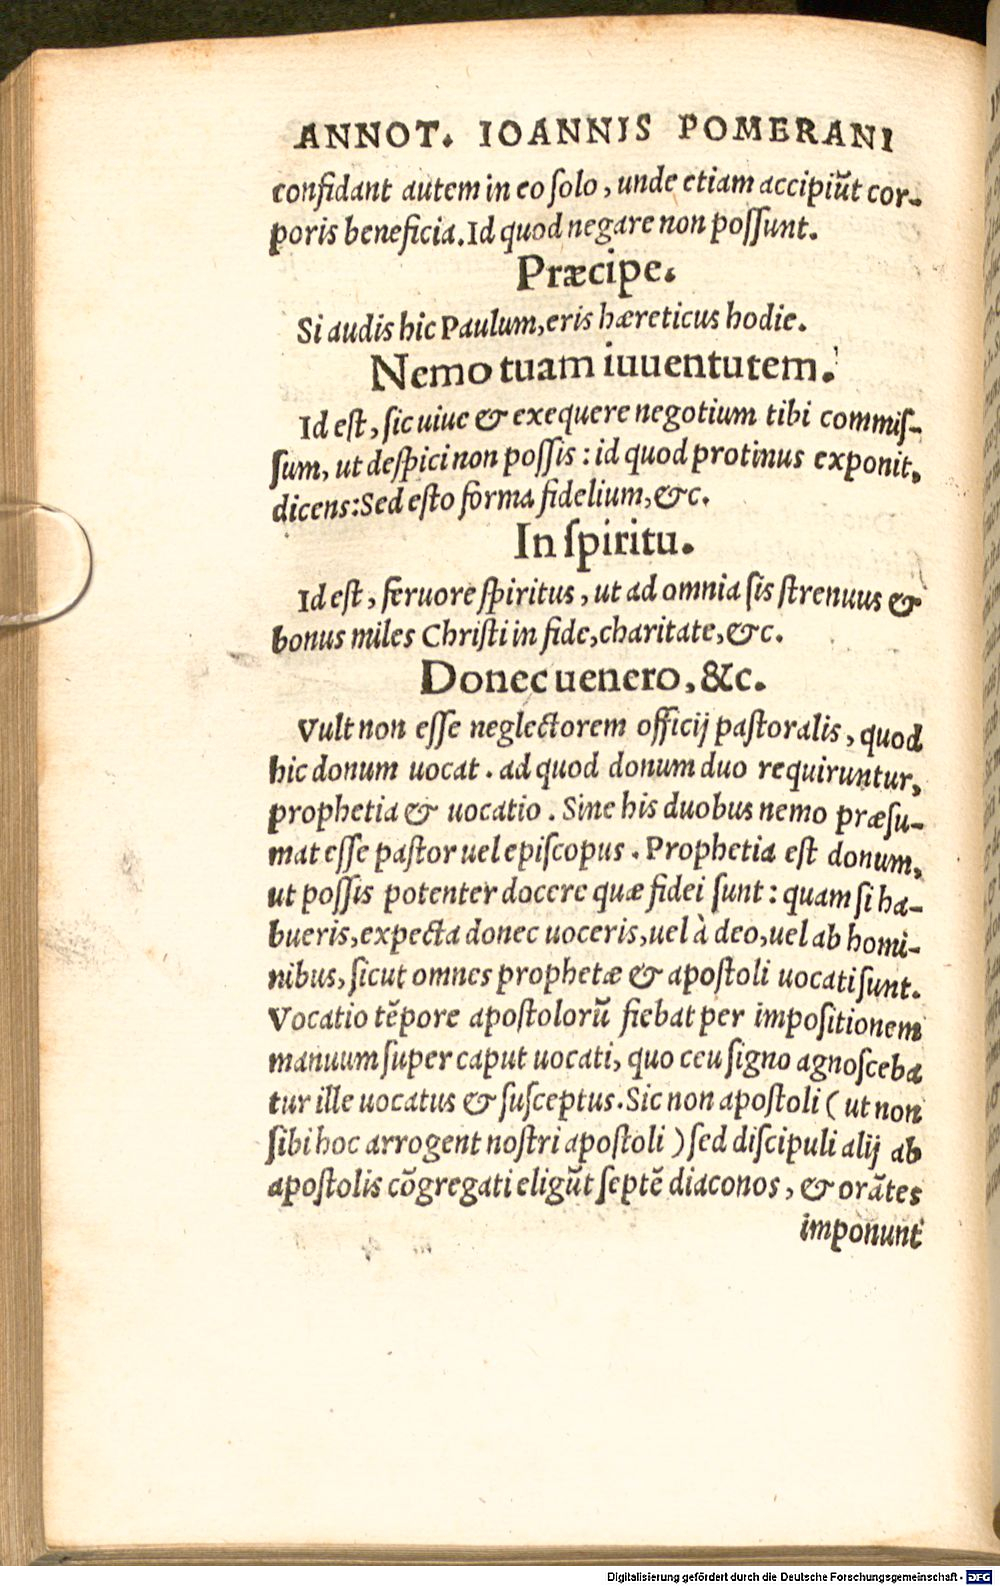 ANNOT. IOANNIS POMERANI
confidant autem in eo ſolo, unde etiam accipiūt cor-
poris beneficia. Id quod negare non poſſunt.
Præcipe.
Si audis hic Paulum, eris hæreticus hodie.
Nemo tuam iuuentutem.
Id eſt, ſic uiue & exequere negotium tibi commiſ-
ſum, ut deſpici non poſſis : id quod protinus exponit,
dicens: Sed eſto forma fidelium, &c.
In ſpiritu.
Id eſt, feruore ſpiritus, ut ad omnia ſis ſtrenuus &
bonus miles Chriſti in fide, charitate, &c.
Donec uenero, &c.
Vult non eſſe neglectorem officij paſtoralis, quod
hic donum uocat. ad quod donum duo requiruntur,
prophetia & uocatio. Sine his duobus nemo præſu-
mat eſſe paſtor uel epiſcopus. Prophetia eſt donum,
ut poſſis potenter docere quæ fidei ſunt: quam ſi ha-
bueris, expecta donec uoceris, uel à deo, uel ab homi-
nibus, ſicut omnes prophetæ & apoſtoli uocati ſunt.
Vocatio tēpore apoſtolorū fiebat per impoſitionem
manuum ſuper caput uocati, quo ceu ſigno agnoſceba
tur ille uocatus & ſuſceptus. Sic non apoſtoli ( ut non
ſibi hoc arrogent noſtri apoſtoli ) ſed diſcipuli alij ab
apoſtolis cōgregati eligūt ſeptē diaconos, & orātes
imponunt
Digitalisierung gefördert durch die Deutsche Forschungsgemeinschaft - DFG